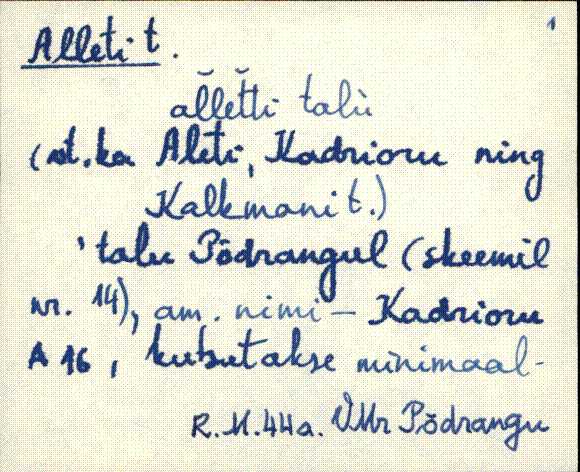 1
Alleti t.
ăllĕtti talù
(vt. ka Aleti, Kadrioru ning
Kalkmani t.)
' talu Põdrangul (skeemil
nr. 14), am. nimi – Kadrioru
A 16, kutsutakse minimaal-
R.M. 44a. VMr Põdrangu